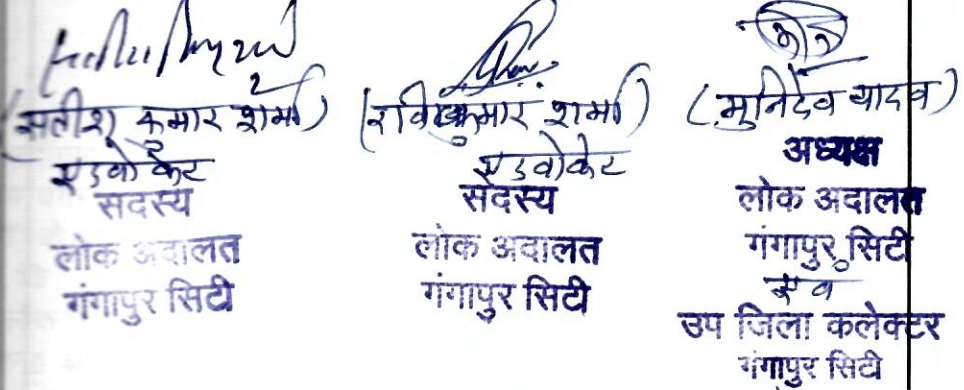 (सतीश कुमार शर्मा)
एडवोकेट
सदस्य
लोक अदालत
गंगापुर सिटी
(रविकुमार शर्मा)
एडवोकेट
सदस्य
लोक अदालत
गंगापुर सिटी
(मुनिदेव यादव)
अध्यक्ष
लोक अदालत
गंगापुर सिटी
एवं
उप जिला कलेक्टर
गंगापुर सिटी